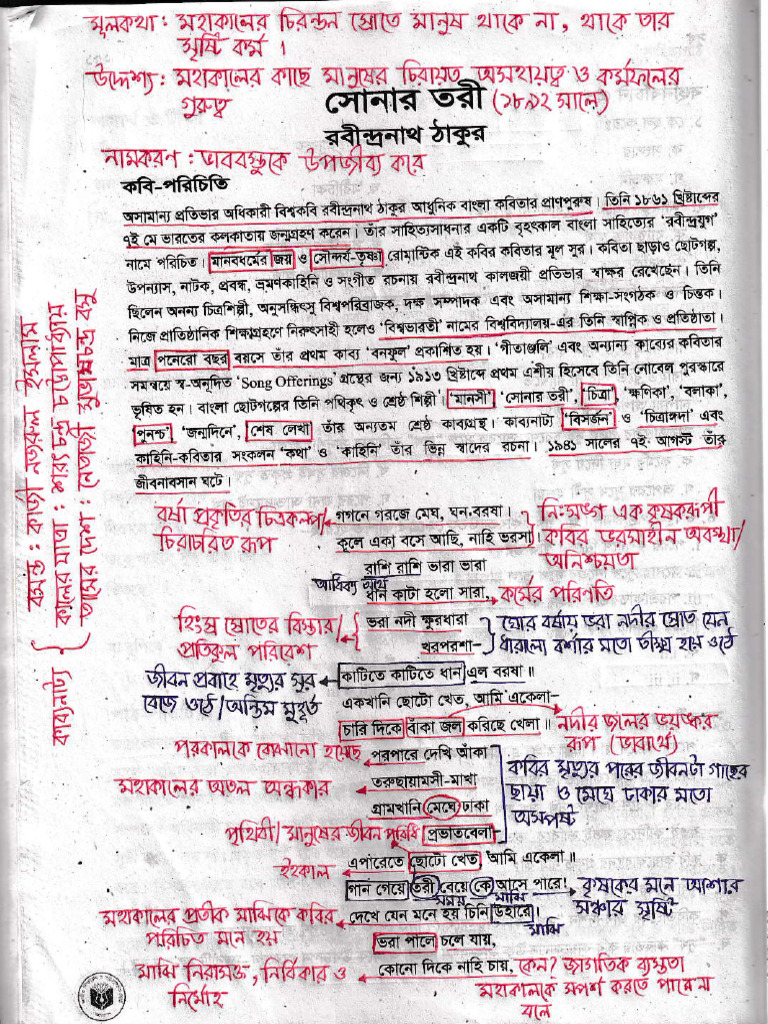 মূলকথা : মহাকালের চিরন্তন স্রোতে মানুষ থাকে না, থাকে তার
সৃষ্টি কর্ম ।
উদ্দেশ্য : মহাকালের কাছে মানুষের চিরায়ত অসহায়ত্ব ও কর্মফলের
গুরুত্ব
সোনার তরী (১৮৯২ সালে)
রবীন্দ্রনাথ ঠাকুর
নামকরণ : ভাববস্তুকে উপজীব্য করে
কবি-পরিচিতি
অসামান্য প্রতিভার অধিকারী বিশ্বকবি রবীন্দ্রনাথ ঠাকুর আধুনিক বাংলা কবিতার প্রাণপুরুষ। তিনি ১৮৬১ খ্রিষ্টাব্দের
৭ই মে ভারতের কলকাতায় জন্মগ্রহণ করেন। তাঁর সাহিত্যসাধনার একটি বৃহৎকাল বাংলা সাহিত্যের 'রবীন্দ্রযুগ'
নামে পরিচিত। মানবধর্মের জয় ও সৌন্দর্য-তৃষ্ণা রোমান্টিক এই কবির কবিতার মূল সুর। কবিতা ছাড়াও ছোটগল্প,
উপন্যাস, নাটক, প্রবন্ধ, ভ্রমণকাহিনি ও সংগীত রচনায় রবীন্দ্রনাথ কালজয়ী প্রতিভার স্বাক্ষর রেখেছেন। তিনি
ছিলেন অনন্য চিত্রশিল্পী, অনুসন্ধিৎসু বিশ্বপরিব্রাজক, দক্ষ সম্পাদক এবং অসামান্য শিক্ষা-সংগঠক ও চিন্তক।
নিজে প্রাতিষ্ঠানিক শিক্ষাগ্রহণে নিরুৎসাহী হলেও 'বিশ্বভারতী' নামের বিশ্ববিদ্যালয়-এর তিনি স্বাপ্নিক ও প্রতিষ্ঠাতা।
মাত্র পনেরো বছর বয়সে তাঁর প্রথম কাব্য 'বনফুল' প্রকাশিত হয়। 'গীতাঞ্জলি' এবং অন্যান্য কাব্যের কবিতার
সমন্বয়ে স্ব-অনূদিত 'Song Offerings' গ্রন্থের জন্য ১৯১৩ খ্রিষ্টাব্দে প্রথম এশীয় হিসেবে তিনি নোবেল পুরস্কারে
ভূষিত হন। বাংলা ছোটগল্পের তিনি পথিকৃৎ ও শ্রেষ্ঠ শিল্পী। 'মানসী' 'সোনার তরী', চিত্রা', 'ক্ষণিকা', 'বলাকা',
পুনশ্চ', 'জন্মদিনে', 'শেষ লেখা' তাঁর অন্যতম শ্রেষ্ঠ কাব্যগ্রন্থ। কাব্যনাট্য 'বিসর্জন' ও 'চিত্রাঙ্গদা' এবং
কাহিনি-কবিতার সংকলন 'কথা' ও 'কাহিনি' তাঁর ভিন্ন স্বাদের রচনা। ১৯৪১ সালের ৭ই আগস্ট তাঁর
জীবনাবসান ঘটে।
কাব্যনাট্য
বসন্ত : কাজী নজরুল ইসলাম
কালের যাত্রা : শরৎ চন্দ্র চট্টোপাধ্যায়
তাসের দেশ : নেতাজী সুভাষচন্দ্র বসু
বর্ষা প্রকৃতির চিত্রকল্প/
চিরাচরিত রূপ
গগনে গরজে মেঘ, ঘন বরষা।
কূলে একা বসে আছি, নাহি ভরসা।
নিঃসঙ্গ এক কৃষকরূপী
কবির ভরসাহীন অবস্থা/
অনিশ্চয়তা
রাশি রাশি ভারা ভারা
আধিক্য অর্থে
ধান কাটা হলো সারা,
কর্মের পরিণতি
হিংস্র স্রোতের বিস্তার/
প্রতিকূল পরিবেশ
ভরা নদী ক্ষুরধারা
খরপরশা–
ঘোর বর্ষায় ভরা নদীর স্রোত যেন
ধারালো বর্শার মতো তীক্ষ্ণ হয়ে ওঠে
জীবন প্রবাহে মৃত্যুর সুর
বেজে ওঠে/অন্তিম মুহূর্ত
কাটিতে কাটিতে ধান এল বরষা॥
একখানি ছোটো খেত, আমি একেলা–
চারি দিকে বাঁকা জল করিছে খেলা॥
নদীর জলের ভয়ঙ্কর
রূপ (ভাবার্থে)
পরকালকে বোঝানো হয়েছে
পরপারে দেখি আঁকা
মহাকালের অতল অন্ধকার
তরুছায়ামসী-মাখা
গ্রামখানি মেঘে ঢাকা
কবির মৃত্যুর পরের জীবনটা গাছের
ছায়া ও মেঘে ঢাকার মতো
অস্পষ্ট
পৃথিবী/মানুষের জীবন পরিধি
প্রভাতবেলা–
ইহকাল
এপারেতে ছোটো খেত, আমি একেলা॥
গান গেয়ে তরী বেয়ে কে আসে পারে!
সময় মাঝি
কৃষকের মনে আশার
সঞ্চার সৃষ্টি
মহাকালের প্রতীক মাঝিকে কবির
পরিচিত মনে হয়
দেখে যেন মনে হয় চিনি উহারে।
মাঝি
ভরা পালে চলে যায়,
মাঝি নিরাসক্ত, নির্বিকার ও
নির্মোহ
কোনো দিকে নাহি চায়,
কেন? জাগতিক ব্যস্ততা
মহাকালকে স্পর্শ করতে পারে না
বলে